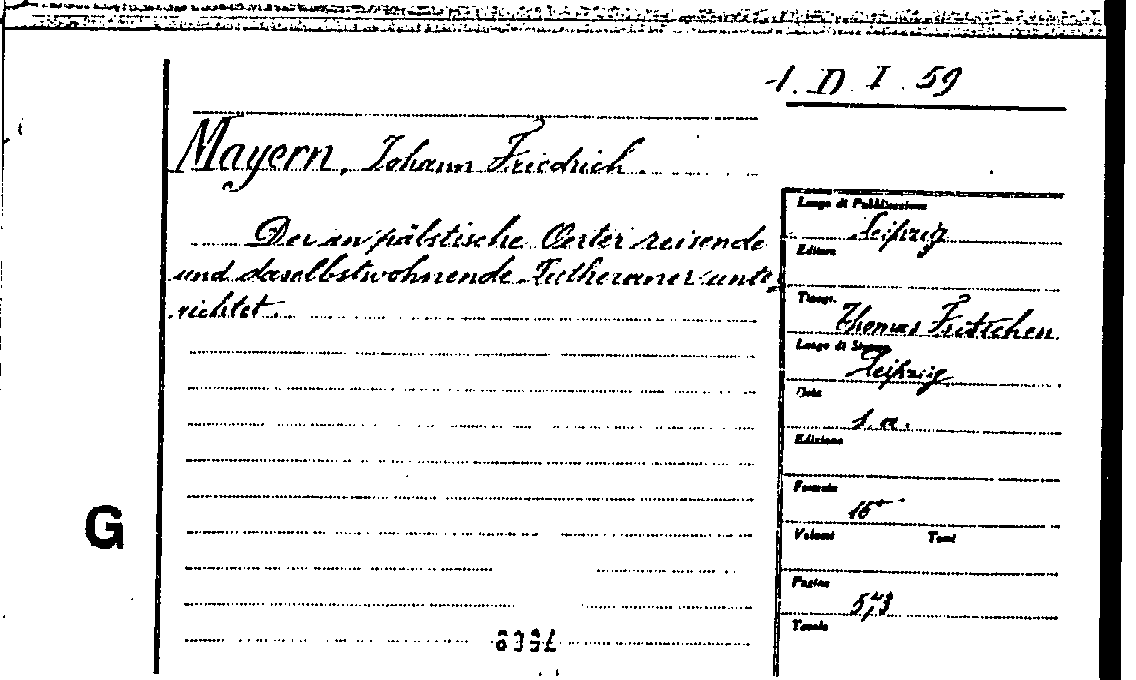 1. D. I. 59
Mayern, Johann Friedrich.
Der an päbstische Oerter reisende
und daselbstwohnende Lutheraner unte-
richtet.
G
Luogo di Pubblicazione
Leipzig
Editore
Tipogr.
Thomas Fritschen
Luogo di Stampa
Leipzig
Data
s. a.
Edizione
Formato
16°
Volumi Tomi
Pagine
573
Tavole